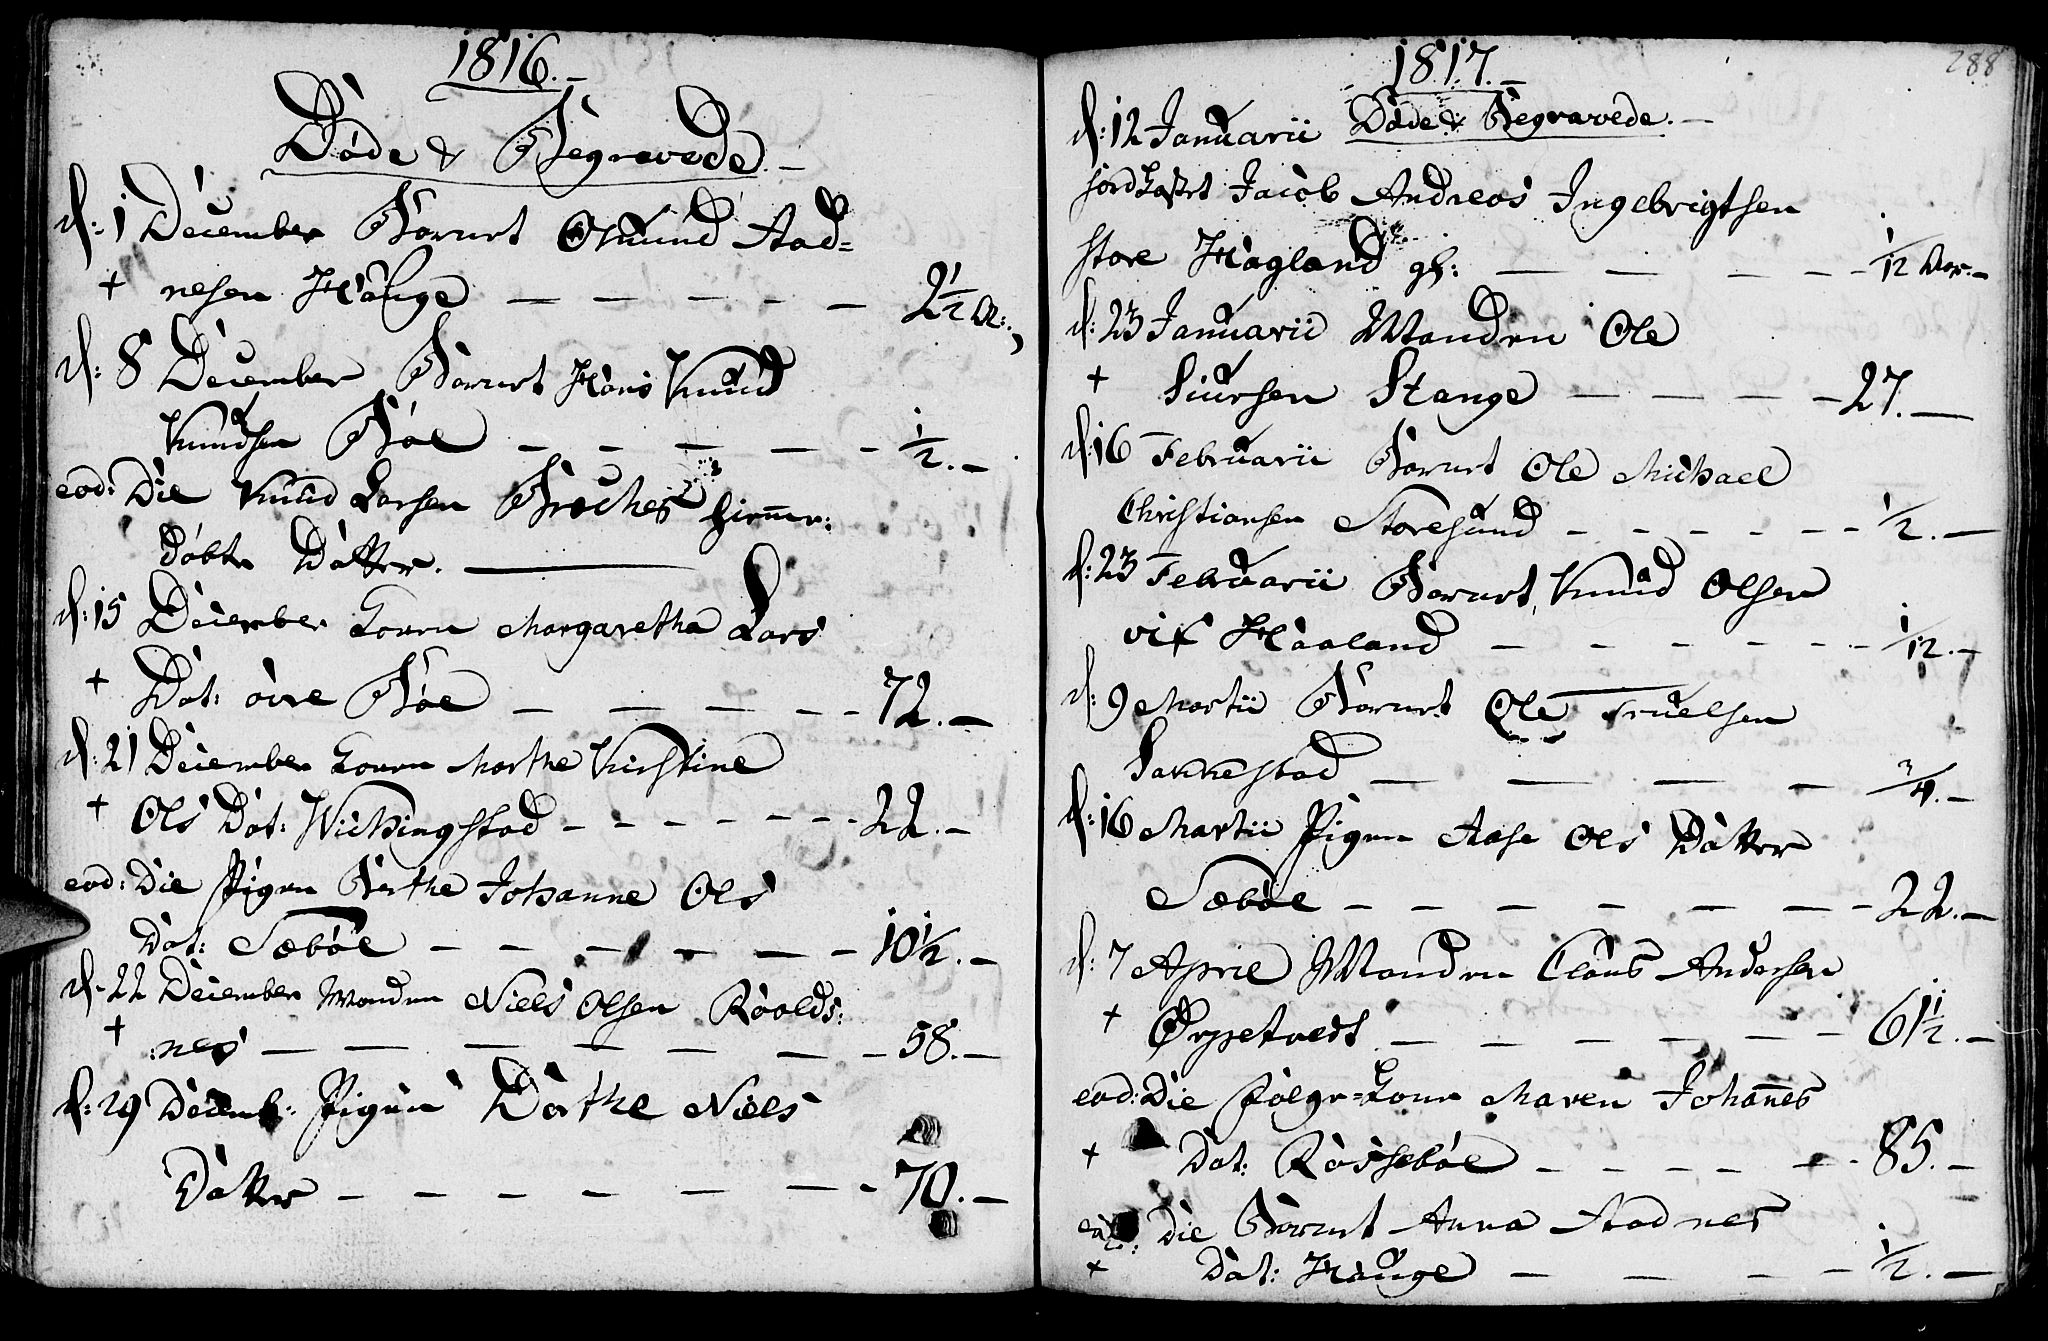 1816.-
Døde & Begravede.-
d: 1 December Barnet Osmund Aad=
+ nesen Hauge — — — — — 2 1/2 Ar:
d: 8 December Barnet Hans Knud
Knudsen Bøe — — — — - 1/2.-
eod: Die Knud Larsen Breches hiemme:
døbte Datter. ———
d: 15 December Konen Margaretha Lars
+ Dat: øvre Bøe — — — — - - 72.—
d: 21 December Konen Marthe Kirstine
+ Ols Dat: Wichingstad - - - - - - - 22.-
eod: Die Pigen Berthe Johanne Ols
Dat: Sæbøe — — — — — — 10 1/2.-
d: 22 December Manden Niels Olsen Røolds:
+ :nes — — — — — — - 58.—
d: 29 Decemb: Pigen Dorthe Niels
Datter — — — — — — - 70.—
288
1817.-
d: 12 Januarii Døde & Begravede.-
jordkastet Jacob Andreas Ingebrigtsen
store Hagland gl: — — — — - 1/12 Aar.-
d: 23 Januarii Manden Ole
+ Siursen Stange — — — — - 27.—
d: 16 Februarii Barnet Ole Michael
Christiansen Storesund - - - - - - 1/2.—
d: 23 Februarii Barnet Knud Olsen
vix Haaland — - - - - - 1/12.-
d: 9 Martii Barnet Ole Truelsen
Sakkestad — — — — 3/4.-
d: 16 Martii Pigen Aase Ols Datter
Sæbøe — — — — — — - 22.—
d: 7 April Manden Claus Andersen
+ Ørpetvedt — — — — — - 61 1/2.-
eod: Die Følge-Kone Maren Johañes
+ Dat: Røssebøe — — — — — - 85.-
eod: Die Barnet Anna Aadnes
+ Dat: Hauge — — — - 1/2.—